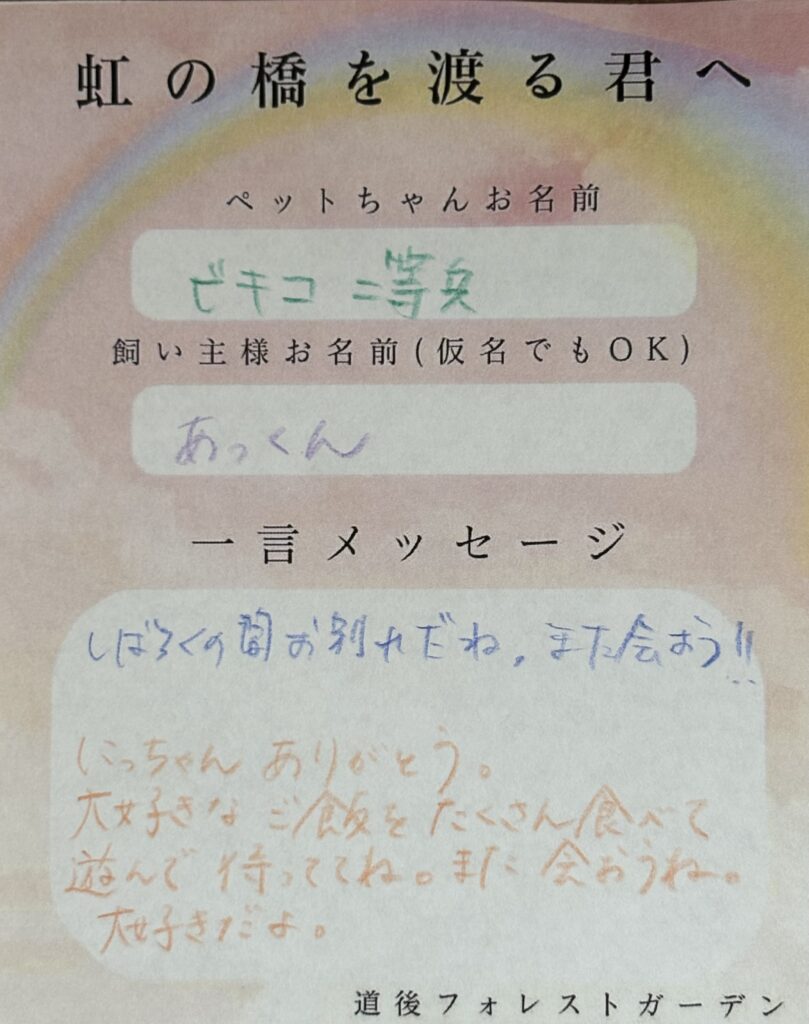 虹の橋を渡る君へ
ペットちゃんお名前
ビキコ 二等兵
飼い主様お名前(仮名でもOK)
あっくん
一言メッセージ
しばらくの間お別れだね。また会おう!!
にっちゃん ありがとう。
大好きな ご飯を たくさん食べて
遊んで 待っててね。また 会おうね。
大好きだよ。
道後フォレストガーデン